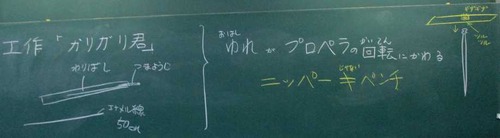 工作「ガリガリ君」
わりばし
つまようじ
エナメル線
50cm
おはし
ゆれが プロペラの回転にかわる
かいてん
ニッパー≠ペンチ
じゃない